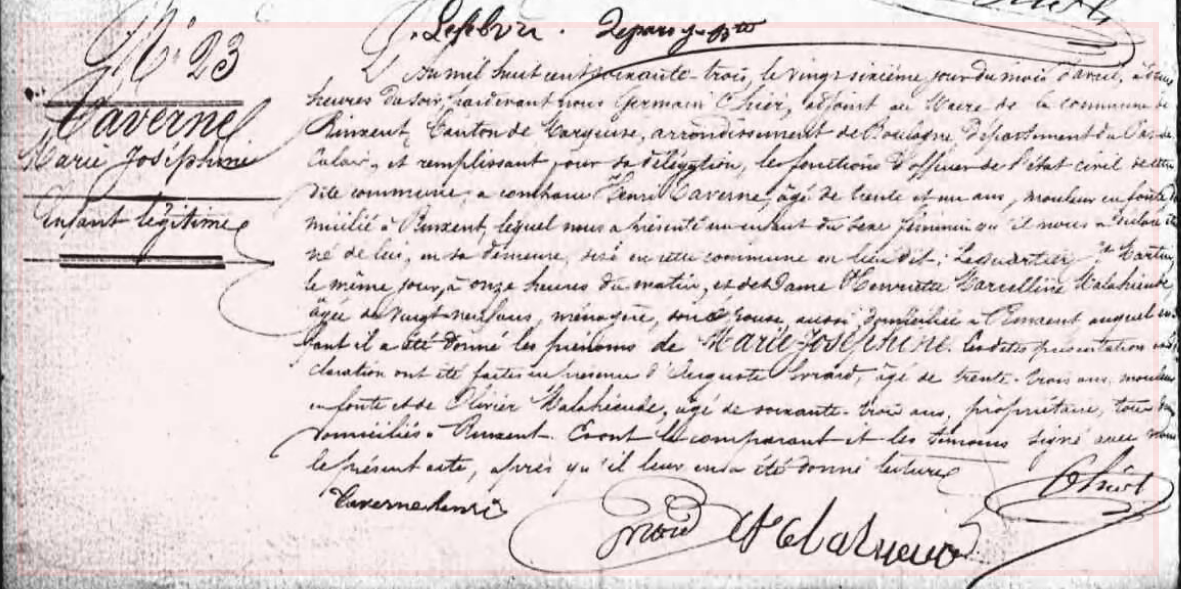 Lefebvre.
N° 23
Taverne
Marie Joséphine
Enfant légitime
L'An mil huit cent soixante-trois, le vingt sixième jour du mois d'avril, à
heures du soir, pardevant nous Germain adjoint au Maire de la commune de
Rinxent, Canton de Marquise, arrondissement de Boulogne, département du Pas-de-
Calais, et remplissant, pour sa délégation, les fonctions d'officier de l'état civil de cette
dite commune, a comparu Henri Taverne, âgé de trente et un ans, mouleur en fonte do
micilié à Rinxent, lequel nous a présenté un enfant du sexe féminin qu'il nous a déclaré être
né de lui, en sa demeure, sise en cette commune en lieu dit: Le quartier St Martin,
le même jour, à onze heures du matin, et de Dame Henriette Marcelline Malahieude,
âgée de vingt-neuf ans, ménagère, son épouse, aussi domiciliée à Rinxent auquel en
fant il a été donné les prénoms de Marie-Joséphine. Ces dites présentation et dé
claration ont été faites en présence d'Auguste âgé de trente-trois ans, mouleur
en fonte et de Olivier Malahieude, âgé de soixante-trois ans, propriétaire, tous deux
domiciliés à Rinxent. Et ont le comparant et les témoins signé avec nous
le présent acte, après qu'il leur en a été donné lecture
Taverne henri